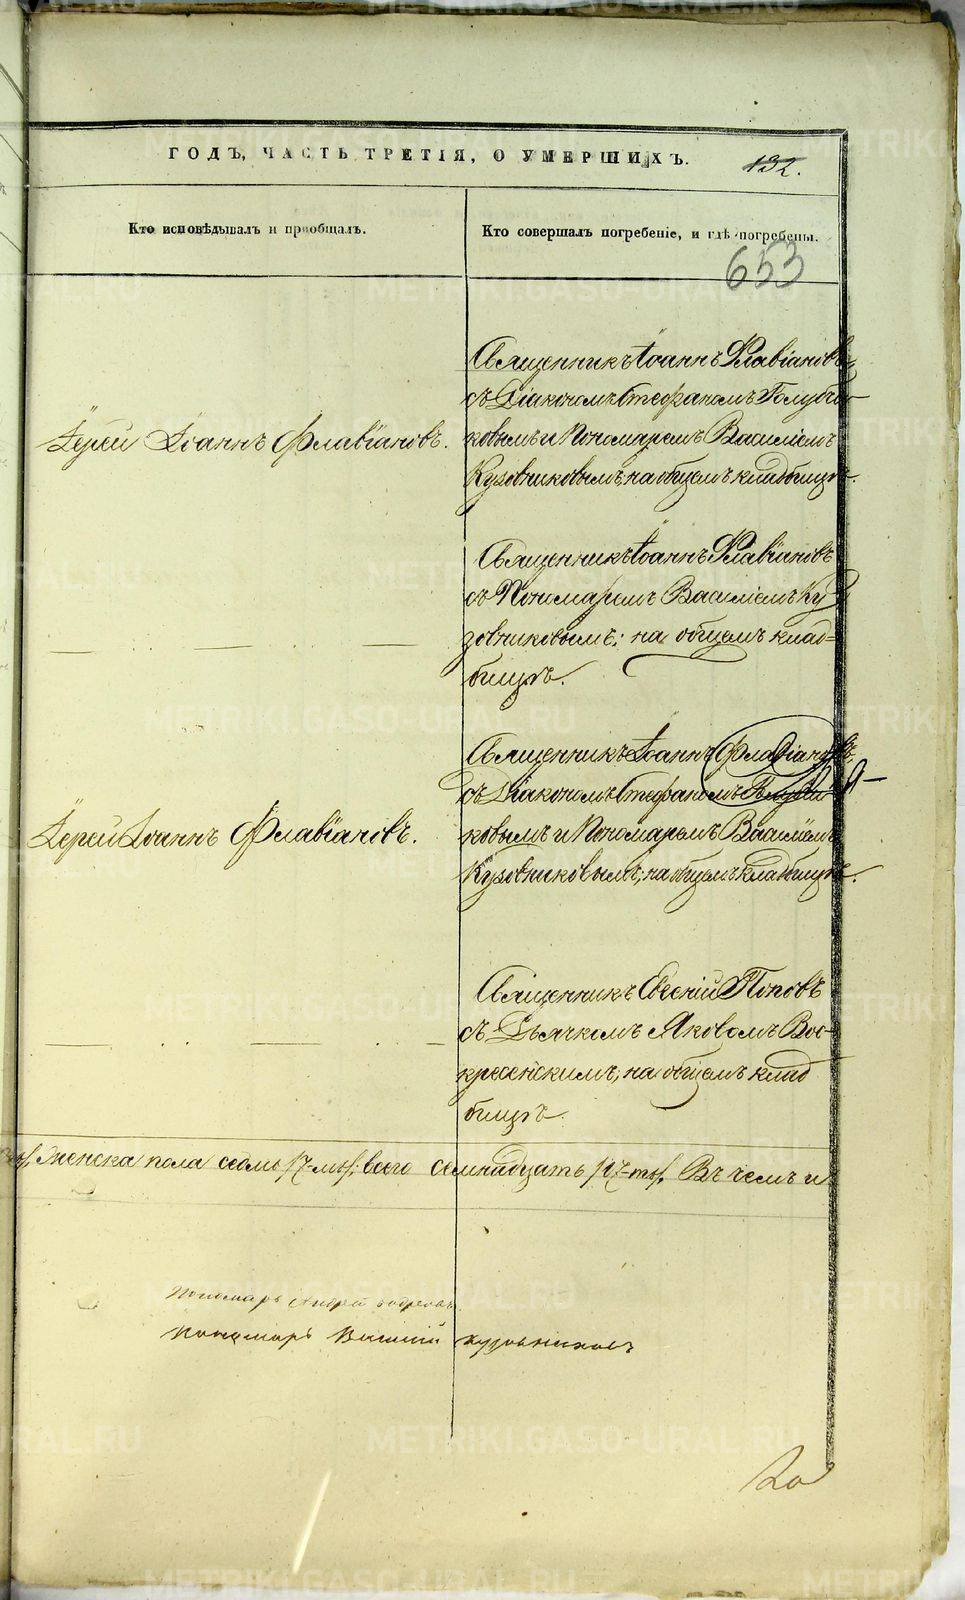 ГОДЪ, ЧАСТЬ ТРЕТІЯ, О УМЕРШИХЪ.
132.
Кто исповѣдывалъ и пріобщалъ.
Кто совершалъ погребеніе, и гдѣ погребены.
653
Священникъ Іоаннъ Флавіановъ
съ Діакономъ Стефаномъ Голубчи-
Іерей Іоаннъ Флавіановъ.
ковымъ и Пономаремъ Василіемъ
Кузовниковымъ, на общемъ кладбищѣ.
Священникъ Іоаннъ Флавіановъ
съ Пономаремъ Василіемъ Ку
зовниковымъ; на общемъ клад-
бищѣ.
Священникъ Іоаннъ Флавіановъ,
съ Діакономъ Стефаномъ
Іерей Іоаннъ Флавіановъ.
ковымъ и Пономаремъ Василіемъ
Кузовниковымъ, на общемъ кладбищѣ.
Священникъ Евгеній Поповъ
съ Дьячкомъ Яковомъ Вос-
кресенскимъ, на общемъ клад
бищѣ.
Женска пола седмь /7-мь/, всего семнадцать /17-ть/. Въ чемъ и
Пономарь Андрей
Пономарь Василій Кузовниковъ
METRIKI.GASO-URAL.RU